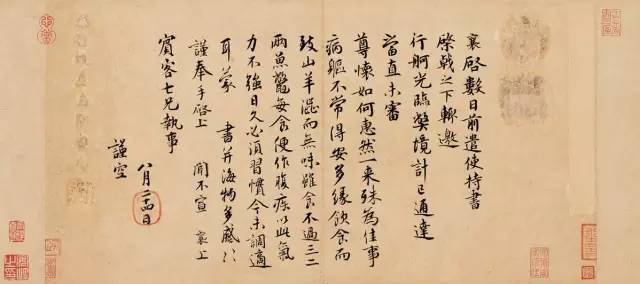 襄啓數日前遣使持書
棨戟之下輙邀
行舸光臨弊境計已通達
當直未審
尊懷如何惠然一来殊為佳事
病軀不常得安多緣飲食而
致山羊澀而無味雖食不過三二
兩魚鼈每食便作腹疾以此氣
力不強日久必須習慣今未調適
耳蒙 書并海物多感〻
謹奉手啓上 聞不宣 襄上
賓客七兄執事
八月二十四日
謹空